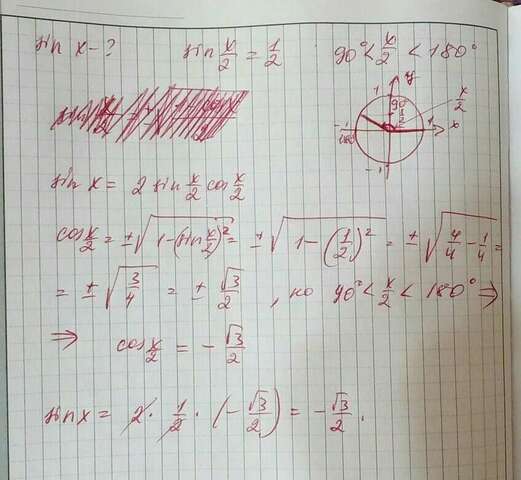 sin x - ? sin x/2 = 1/2 90° < x/2 < 180°
y
1
90
1/2
x/2
-1
180
1
x
-1
sin x = 2 sin x/2 cos x/2
cos x/2 = ±√(1-(sin x/2)²) = ±√(1-(1/2)²) = ±√(4/4 - 1/4) =
= ±√(3/4) = ± √3/2 , но 90° < x/2 < 180° ⇒
⇒ cos x/2 = - √3/2
sin x = 2 · 1/2 · (- √3/2) = - √3/2 .